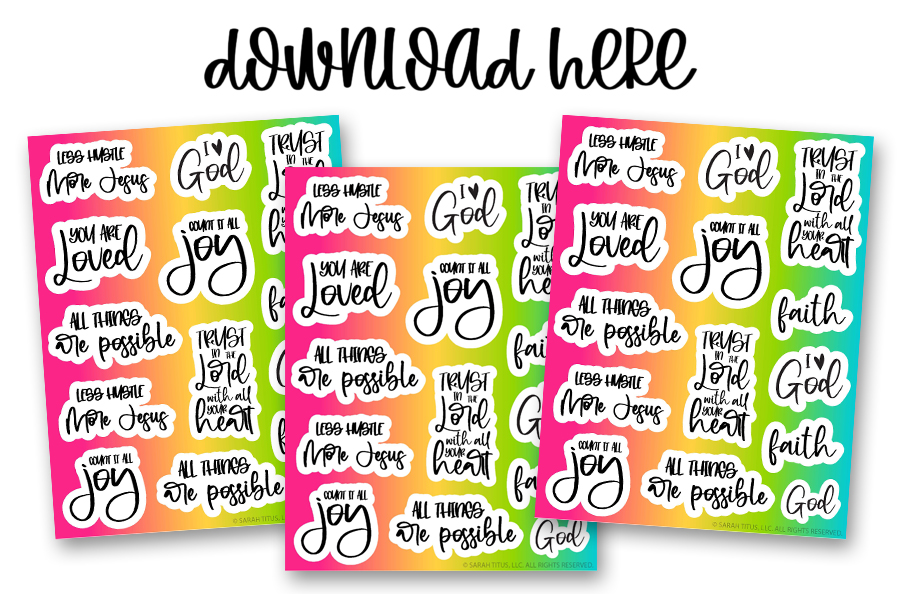 download here
LESS HUSTLE
More Jesus
I ♥
God
TRUST
in the
Lord
YOU ARE
Loved
COUNT IT ALL
joy
ALL THINGS
are possible
TRUST
IN THE
Lord
with all
YOUR
heart
LESS HUSTLE
More Jesus
COUNT IT ALL
joy
ALL THINGS
are possible
© SARAH TITUS, L
LESS HUSTLE
More Jesus
I ♥
God
YOU ARE
Loved
COUNT IT ALL
joy
ALL THINGS
are possible
TRUST
IN THE
Lord
with all
YOUR
heart
LESS HUSTLE
More Jesus
COUNT IT ALL
joy
ALL THINGS
are possible
God
© SARAH TITUS, LLC. ALL RIGHTS RESERVED.
LESS HUSTLE
More Jesus
I ♥
God
TRUST
IN THE
Lord
with all
YOUR
heart
YOU ARE
Loved
COUNT IT ALL
joy
ALL THINGS
are possible
faith
TRUST
IN THE
Lord
with all
YOUR
heart
I ♥
God
LESS HUSTLE
More Jesus
faith
COUNT IT ALL
joy
ALL THINGS
are possible
God
© SARAH TITUS, LLC. ALL RIGHTS RESERVED.